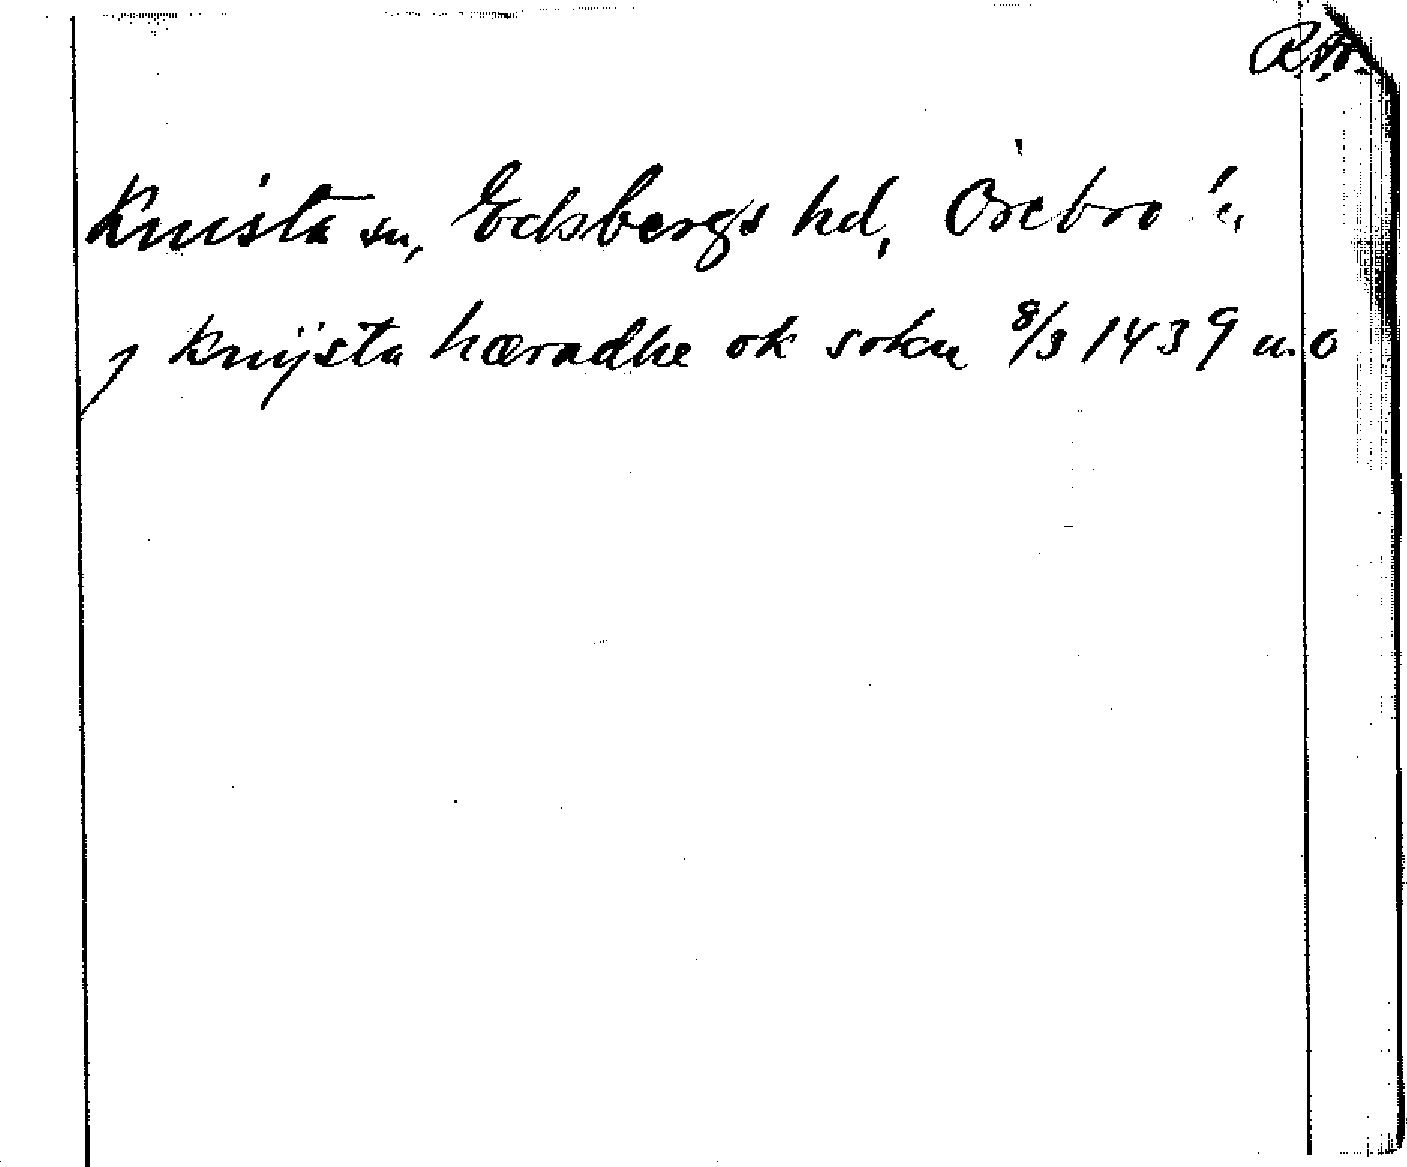 Knista sn, Edsbergs hd, Örebro l.
j knijsta hæradhe ok sokn 8/3 1439 u. o